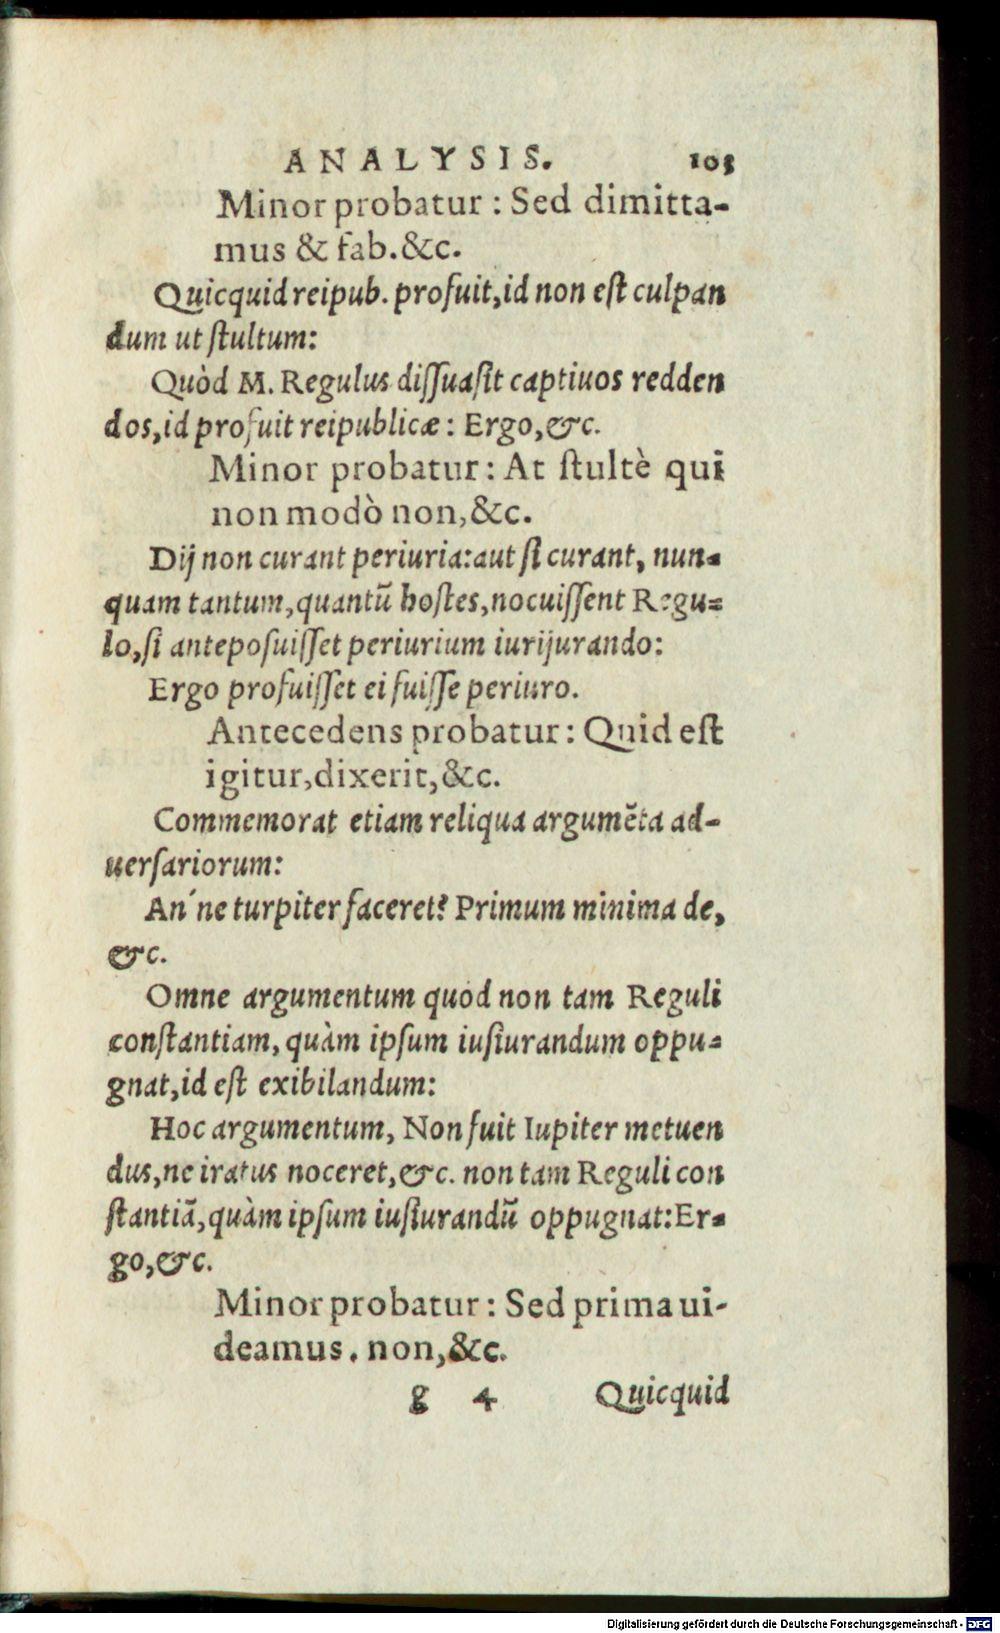 ANALYSIS. 103
Minor probatur : Sed dimitta-
mus & fab.&c.
Quicquid reipub. profuit, id non eſt culpan
dum ut ſtultum:
Quòd M. Regulus diſſuaſit captiuos redden
dos, id profuit reipublicæ : Ergo, &c.
Minor probatur : At ſtultè qui
non modò non, &c.
Dij non curant periuria: aut ſi curant, nun-
quam tantum, quantū hoſtes, nocuiſſent Regu-
lo, ſi antepoſuiſſet periurium iurijurando:
Ergo profuiſſet ei fuiſſe periuro.
Antecedens probatur : Quid eſt
igitur, dixerit, &c.
Commemorat etiam reliqua argumēta ad-
uerſariorum:
An´ne turpiter faceret? Primum minima de,
&c.
Omne argumentum quod non tam Reguli
conſtantiam, quàm ipſum iuſiurandum oppu-
gnat, id eſt exibilandum:
Hoc argumentum, Non fuit Iupiter metuen
dus, ne iratus noceret, &c. non tam Reguli con
ſtantiā, quàm ipſum iuſiurandū oppugnat: Er-
go, &c.
Minor probatur : Sed prima ui-
deamus. non, &c.
g 4 Quicquid
Digitalisierung gefördert durch die Deutsche Forschungsgemeinschaft - DFG